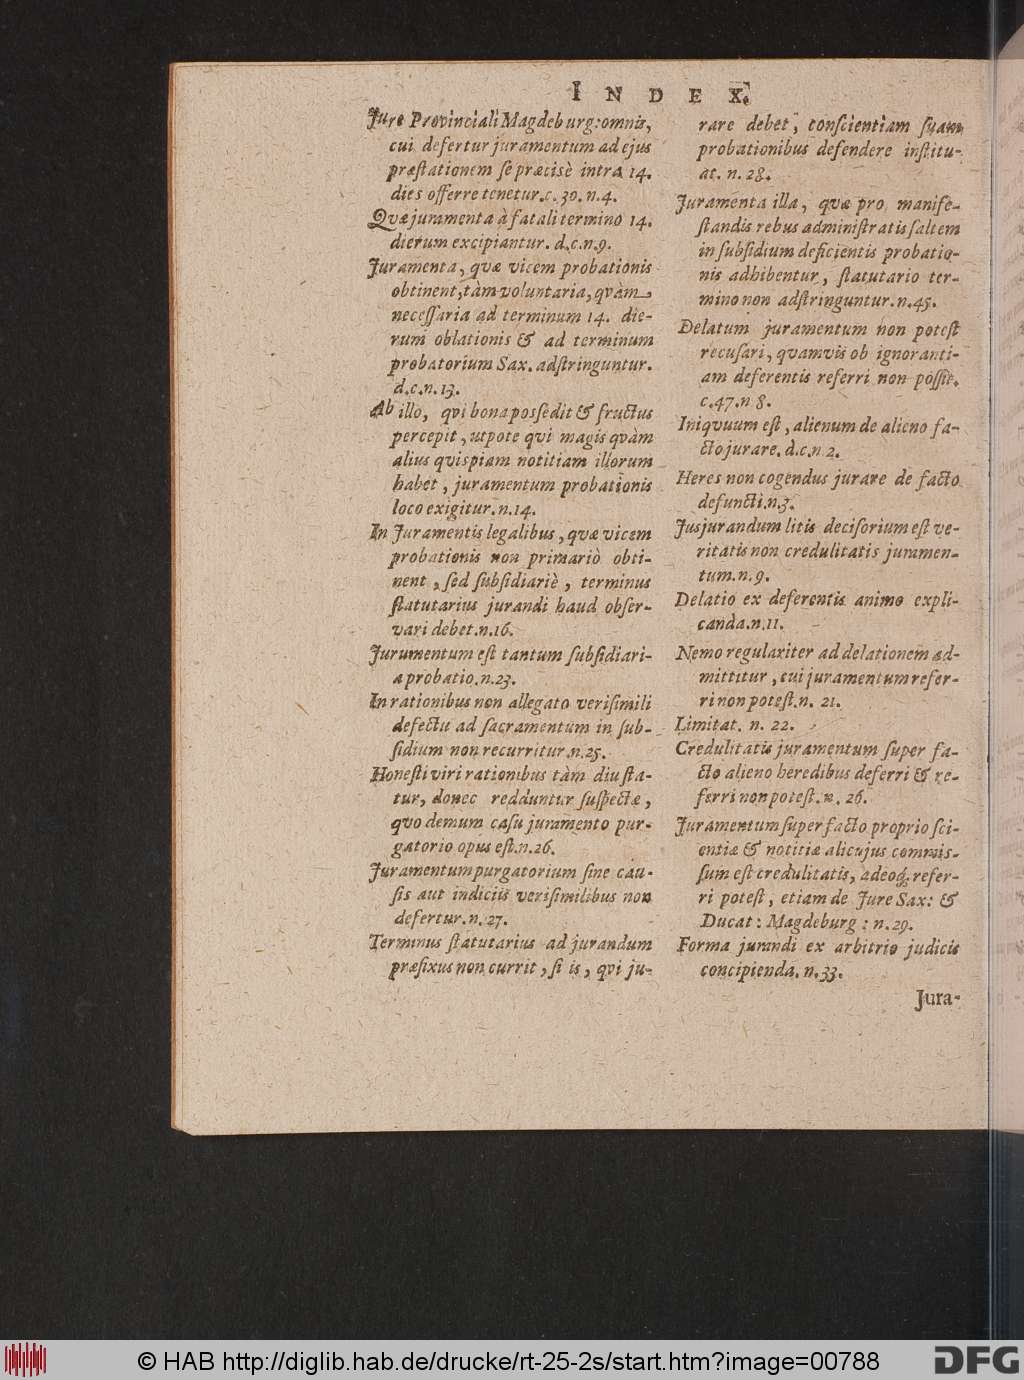 INDEX.
Jure Provinciali Magdeburg: omnis,
cui defertur juramentum ad ejus
præſtationem ſe præcisè intra 14.
dies offerre tenetur. c. 30. n. 4.
Quæ juramenta à fatali termino 14.
dierum excipiantur. d. c. n. 9.
Juramenta, quæ vicem probationis
obtinent, tàm voluntaria, qvàm
neceſſaria ad terminum 14. die-
rum oblationis & ad terminum
probatorium Sax. adſtringuntur.
d. c. n. 13.
Ab illo, qvi bona posſedit & fructus
percepit, utpote qvi magis qvàm
alius quispiam notitiam illorum
habet, juramentum probationis
loco exigitur. n. 14.
In Juramentis legalibus, quæ vicem
probationis non primariò obti-
nent, ſed ſubſidiariè, terminus
ſtatutarius jurandi haud obſer-
vari debet. n. 16.
Jurumentum eſt tantum ſubſidiari-
a probatio. n. 23.
In rationibus non allegato veriſimili
defectu ad ſacramentum in ſub-
ſidium non recurritur. n. 25.
Honeſti viri rationibus tàm diu ſta-
tur, donec redduntur ſuſpectæ,
quo demum caſu juramento pur-
gatorio opus eſt. n. 26.
Juramentum purgatorium ſine cau-
ſis aut indiciis veriſimilibus non
defertur. n. 27.
Terminus ſtatutarius ad jurandum
præfixus non currit, ſi is, qvi ju-
rare debet, conſcientiam ſuam
probationibus defendere inſtitu-
at. n. 28.
Juramenta illa, quæ pro manife-
ſtandis rebus adminiſtratis ſaltem
in ſubſidium deficientis probatio-
nis adhibentur, ſtatutario ter-
mino non adſtringuntur. n. 45.
Delatum juramentum non poteſt
recuſari, quamvis ob ignoranti-
am deferentis referri non poſſit.
c. 47. n 8.
Iniqvuum eſt, alienum de alieno fa-
cto jurare. d. c. n 2.
Heres non cogendus jurare de facto
defuncti. n. 3.
Jusjurandum litis deciſorium eſt ve-
ritatis non credulitatis juramen-
tum. n. 9.
Delatio ex deferentis animo expli-
canda. n. 11.
Nemo regulariter ad delationem ad-
mittitur, cui juramentum refer-
ri non poteſt. n. 21.
Limitat. n. 22.
Credulitatis juramentum ſuper fa-
cto alieno heredibus deferri & re-
ferri non poteſt. n. 26.
Juramentum ſuper facto proprio ſci-
entiæ & notitiæ alicujus commiſ-
ſum eſt credulitatis, adeoq; refer-
ri poteſt, etiam de Jure Sax: &
Ducat: Magdeburg: n. 29.
Forma jurandi ex arbitrio judicis
concipienda. n. 33.
Jura-
© HAB http://diglib.hab.de/drucke/rt-25-2s/start.htm?image=00788
DFG